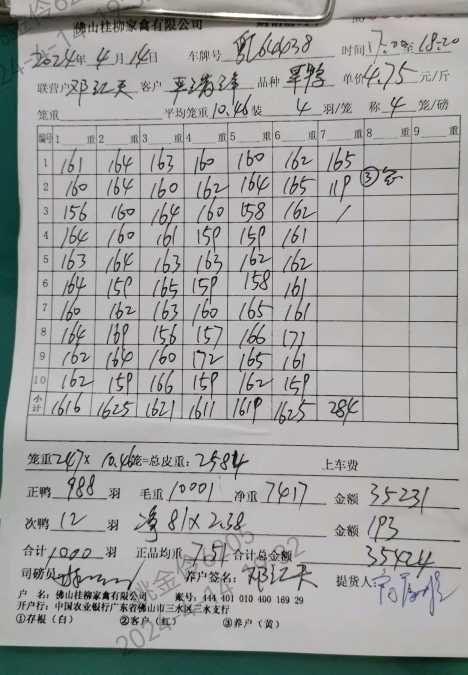 佛山桂柳家禽有限公司
2024年4月14日 车牌号 时间17:00至18:20
联营户 邓江天 客户 品种 单价4.75元/斤
笼重 平均笼重10.46装 4 羽/笼 称 4 笼/磅
编号 1 重 2 重 3 重 4 重 5 重 6 重 7 重 8 重 9 重
1 161 164 163 160 160 162 165
2 160 164 160 162 164 165 119 ③
3 156 160 164 160 158 162 /
4 164 160 161 159 159 161
5 163 164 163 163 162 162
6 164 159 165 159 158 161
7 160 162 163 160 165 161
8 164 169 156 157 166 171
9 162 164 160 172 165 161
10 162 159 166 159 162 159
小计 1616 1625 1621 1611 1619 1625 284
笼重 247× 10.46笼=总皮重:2584 上车费
正鸭 988 羽 毛重 10001 净重 7417 金额 35231
次鸭 12 羽 净 81×2.38 金额 193
合计 1000 羽 正品均重 7.51 合计总金额 35424
司磅员 养户签名: 邓江天 提货人:
户 名: 佛山桂柳家禽有限公司 账号: 444 401 010 400 169 29
开户行: 中国农业银行广东省佛山市三水区三水支行
①存根(白) ②客户(红) ③养户(黄)